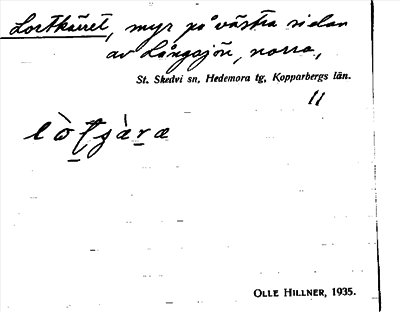 Lortkärret, myr på västra sidan
av Långsjön, norra,
St. Skedvi sn, Hedemora tg, Kopparbergs län.
11
OLLE HILLNER, 1935.